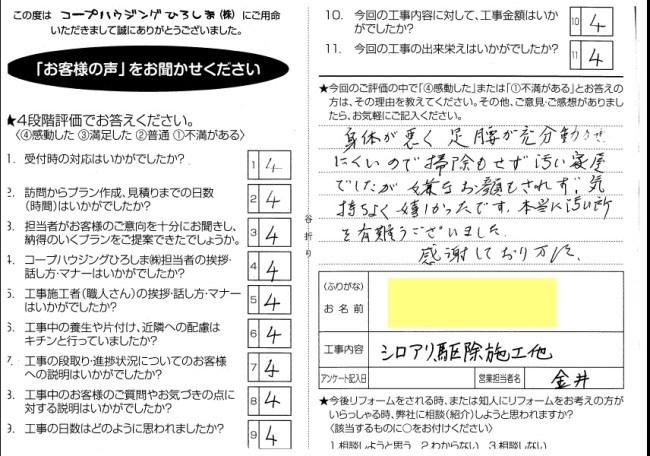 この度は コープハウジングひろしま(株) にご用命
いただきまして誠にありがとうございました。
「お客様の声」をお聞かせください
★4段階評価でお答えください。
〈④感動した ③満足した ②普通 ①不満がある〉
1. 受付時の対応はいかがでしたか?
1 4
2. 訪問からプラン作成、見積りまでの日数
(時間)はいかがでしたか?
2 4
3. 担当者がお客様のご意向を十分にお聞きし、
納得のいくプランをご提案できたでしょうか。
3 4
4. コープハウジングひろしま㈱担当者の挨拶・
話し方・マナーはいかがでしたか?
4 4
5. 工事施工者(職人さん)の挨拶・話し方・マナー
はいかがでしたか?
5 4
6. 工事中の養生や片付け、近隣への配慮は
キチンと行っていましたか?
6 4
7. 工事の段取り・進捗状況についてのお客様
への説明はいかがでしたか?
7 4
8. 工事中のお客様のご質問やお気づきの点に
対する説明はいかがでしたか?
8 4
9. 工事の日数はどのように思われましたか?
9 4
谷折り
10. 今回の工事内容に対して、工事金額はいか
がでしたか?
10 4
11. 今回の工事の出来栄えはいかがでしたか?
11 4
★今回のご評価の中で「④感動した」または「①不満がある」とお答えの
方は、その理由を教えてください。その他、ご意見・ご感想がありまし
たら、お気軽にご記入ください。
身体が悪く 足腰が充分動かせ
にくいので掃除もせず汚い寝屋
でしたが 嫌なお顔もされず、気
持ちよく嬉しかったです。本当に汚い所
を有難うございました。
感謝しております。
(ふりがな)
お 名 前
工事内容 シロアリ駆除施工他
アンケート記入日 営業担当者名 金井
★今後リフォームをされる時、または知人にリフォームをお考えの方が
いらっしゃる時、弊社に相談(紹介)しようと思われますか?
〈該当するものに○をお付けください〉
1.相談しようと思う 2.わからない 3.相談しない